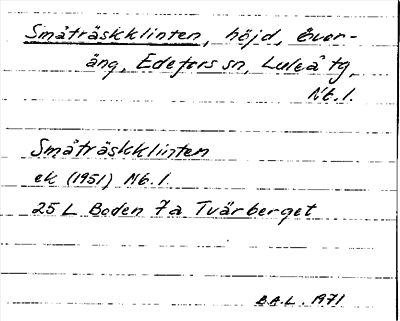 Småträskklinten, höjd, Över-
äng, Edefors sn, Luleå tg,
Nb. l.
Småträskklinten
ek (1951) Nb. l.
25 L Boden 7a Tvärberget
B.A.L. 1971